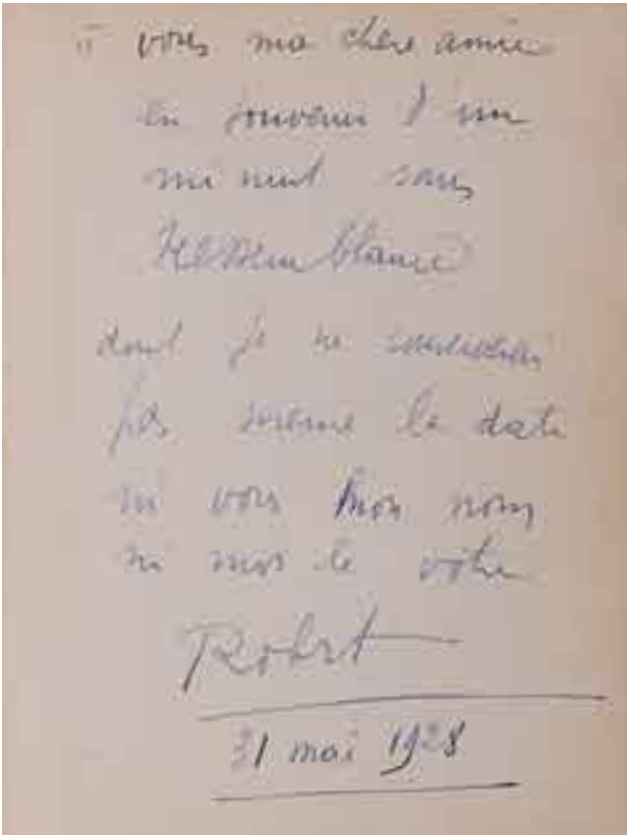 à vous ma chère amie
en souvenir d'un
minuit sans
Ressemblance
dont je ne
pas même la date
ni vous mon nom
ni moi le votre
Robert
31 mai 1928